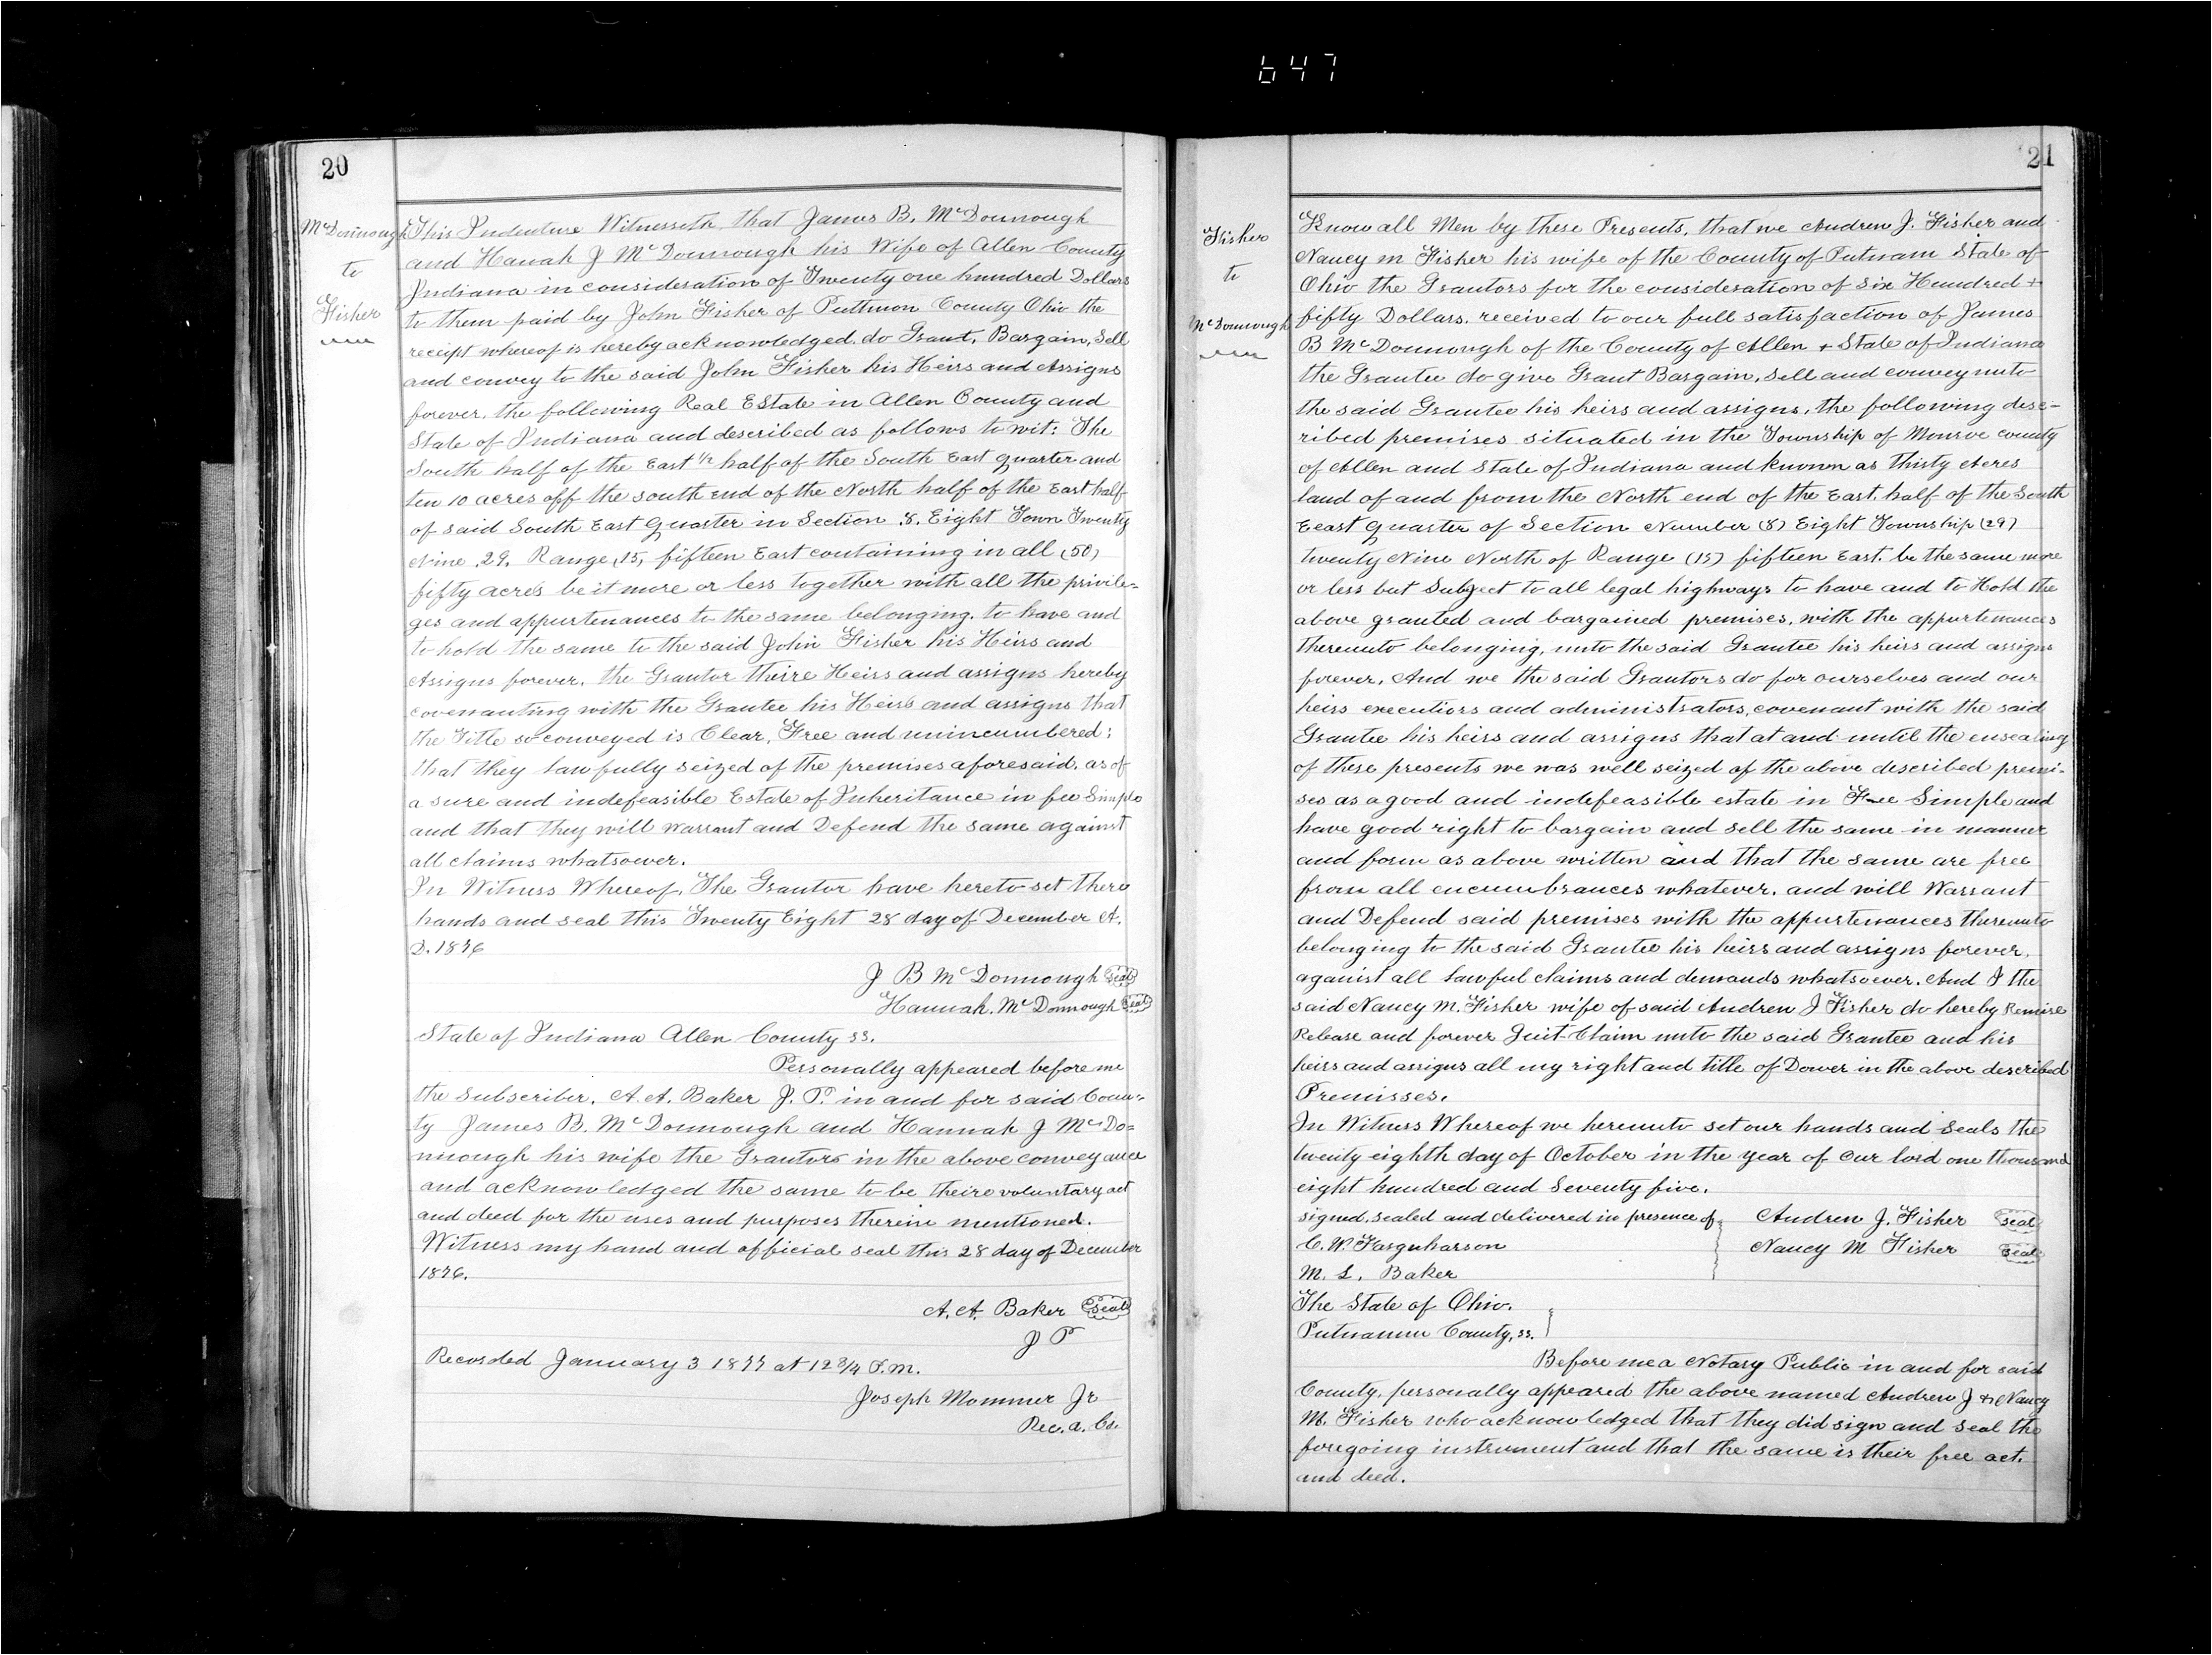 647
20
McDonnough
to
Fisher
This Indenture Witnesseth, that James B. McDonnough
and Hanah J McDonnough his Wife of Allen County
Indiana in consideration of Twenty one hundred Dollars
to them paid by John Fisher of Puttmon County Ohio the
receipt whereof is hereby acknowledged, do Grant, Bargain, Sell
and convey to the said John Fisher his Heirs and Assigns
forever, the following Real Estate in Allen County and
State of Indiana and described as follows to wit: The
South half of the East 1/2 half of the South East quarter and
ten 10 acres off the south end of the North half of the East half
of said South East Quarter in Section .8. Eight Town Twenty
Nine .29. Range ,15, fifteen East containing in all (50)
fifty acres be it more or less together with all the privile=
ges and appurtenances to the same belonging. to have and
to hold the same to the said John Fisher his Heirs and
Assigns forever. the Grantor theire Heirs and assigns hereby
covenanting with the Grantee his Heirs and assigns that
the Title so conveyed is Clear, Free and unincumbered;
that they lawfully seized of the premises aforesaid. as of
a sure and indefeasible Estate of Inheritance in fee Simple
and that they will warrant and Defend the same against
all claims whatsoever.
In Witness Whereof, The Grantor have hereto set there
hands and seal this Twenty Eight 28 day of December A.
D. 1876
J B McDonnough seal
Hannah. McDonnough seal
State of Indiana Allen County ss.
Personally appeared before me
the subscriber, A. A. Baker J. P. in and for said Coun=
ty James B. McDonnough and Hannah J McDo=
nnough his wife the Grantors in the above conveyance
and acknowledged the same to be theire voluntary act
and deed for the uses and purposes therein mentioned.
Witness my hand and official seal this 28 day of December
1876.
A. A. Baker seal
J P
Recorded January 3 1877 at 12 3/4 P.m.
Joseph Mommer Jr
Rec. A. Co.
21
Fisher
to
McDonnough
Know all Men by these Presents, that we Andrew J. Fisher and
Nancy m Fisher his wife of the County of Putnam State of
Ohio the Grantors for the consideration of Six Hundred +
fifty Dollars. received to our full satisfaction of James
B McDonnough of the County of Allen + State of Indiana
the Grantee do give Grant Bargain, Sell and convey unto
the said Grantee his heirs and assigns, the following desc=
ribed premises situated in the Township of Monroe county
of Allen and State of Indiana and known as thirty Acres
land of and from the North end of the East. half of the South
Eeast Quarter of Section Number (8) Eight Township (29)
twenty Nine North of Range (15) fifteen East. be the same more
or less but Subject to all legal highways to have and to Hold the
above granted and bargained premises, with the appurtenances
thereunto belonging, unto the said Grantee his heirs and assigns
forever, And we the said Grantors do for ourselves and our
heirs executiors and administrators, covenant with the said
Grantee his heirs and assigns that at and until the ensealing
of these presents we was well seized of the above described premi-
ses as a good and indefeasible estate in Fee Simple and
have good right to bargain and sell the same in manner
and form as above written and that the same are free
from all encumbrances whatever. and will Warrant
and Defend said premises with the appurtenances thereunto
belonging to the said Grantee his heirs and assigns forever,
against all lawful claims and demands whatsoever. And I the
said Nancy M. Fisher wife of said Andrew J Fisher do hereby Remise
Release and forever Quit-Claim unto the said Grantee and his
heirs and assigns all my right and title of Dower in the above described
Premisses.
In Witness Whereof we hereunto set our hands and Seals the
twenty eighth day of October in the year of our lord one thousand
eight hundred and Seventy five.
signed, sealed and delivered in presence of Andrew J. Fisher seal
C. W. Farquharson Nancy M Fisher seal
M. L. Baker
The State of Ohio.
Putnamm County, ss.
Before me a Notary Public in and for said
County, personally appeared the above named Andrew J + Nancy
M. Fisher who acknowledged that they did sign and seal the
foregoing instrument and that the same is their free act.
and deed.